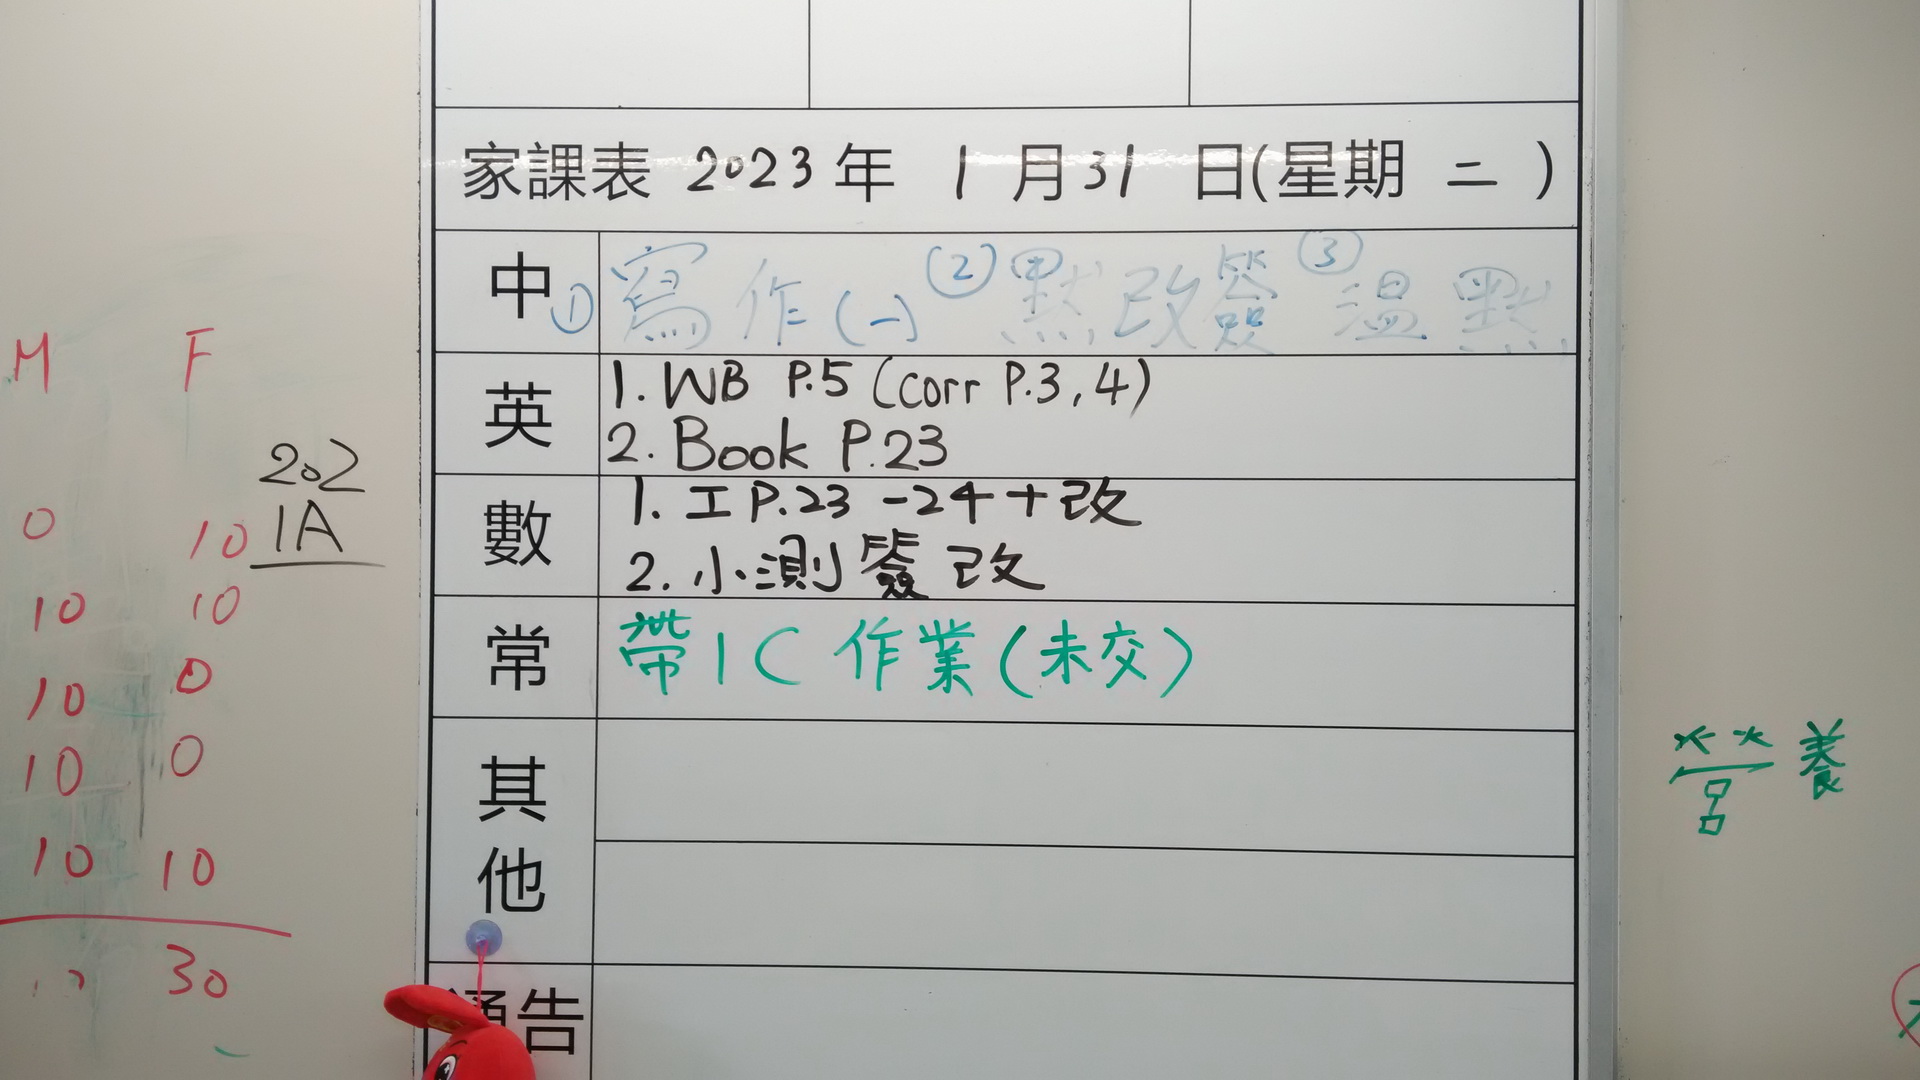 家課表 2023年 1月31日(星期二)
中 ①寫作(一) ②默改簽 ③溫默
英 1. WB P.5 (corr P.3,4)
2. Book P.23
數 1. 工 P.23-24+改
2. 小測簽改
常 帶1C作業(未交)
其他
通告
M F
202
1A
0 10
10 10
10 0
10 0
10 10
30
營養